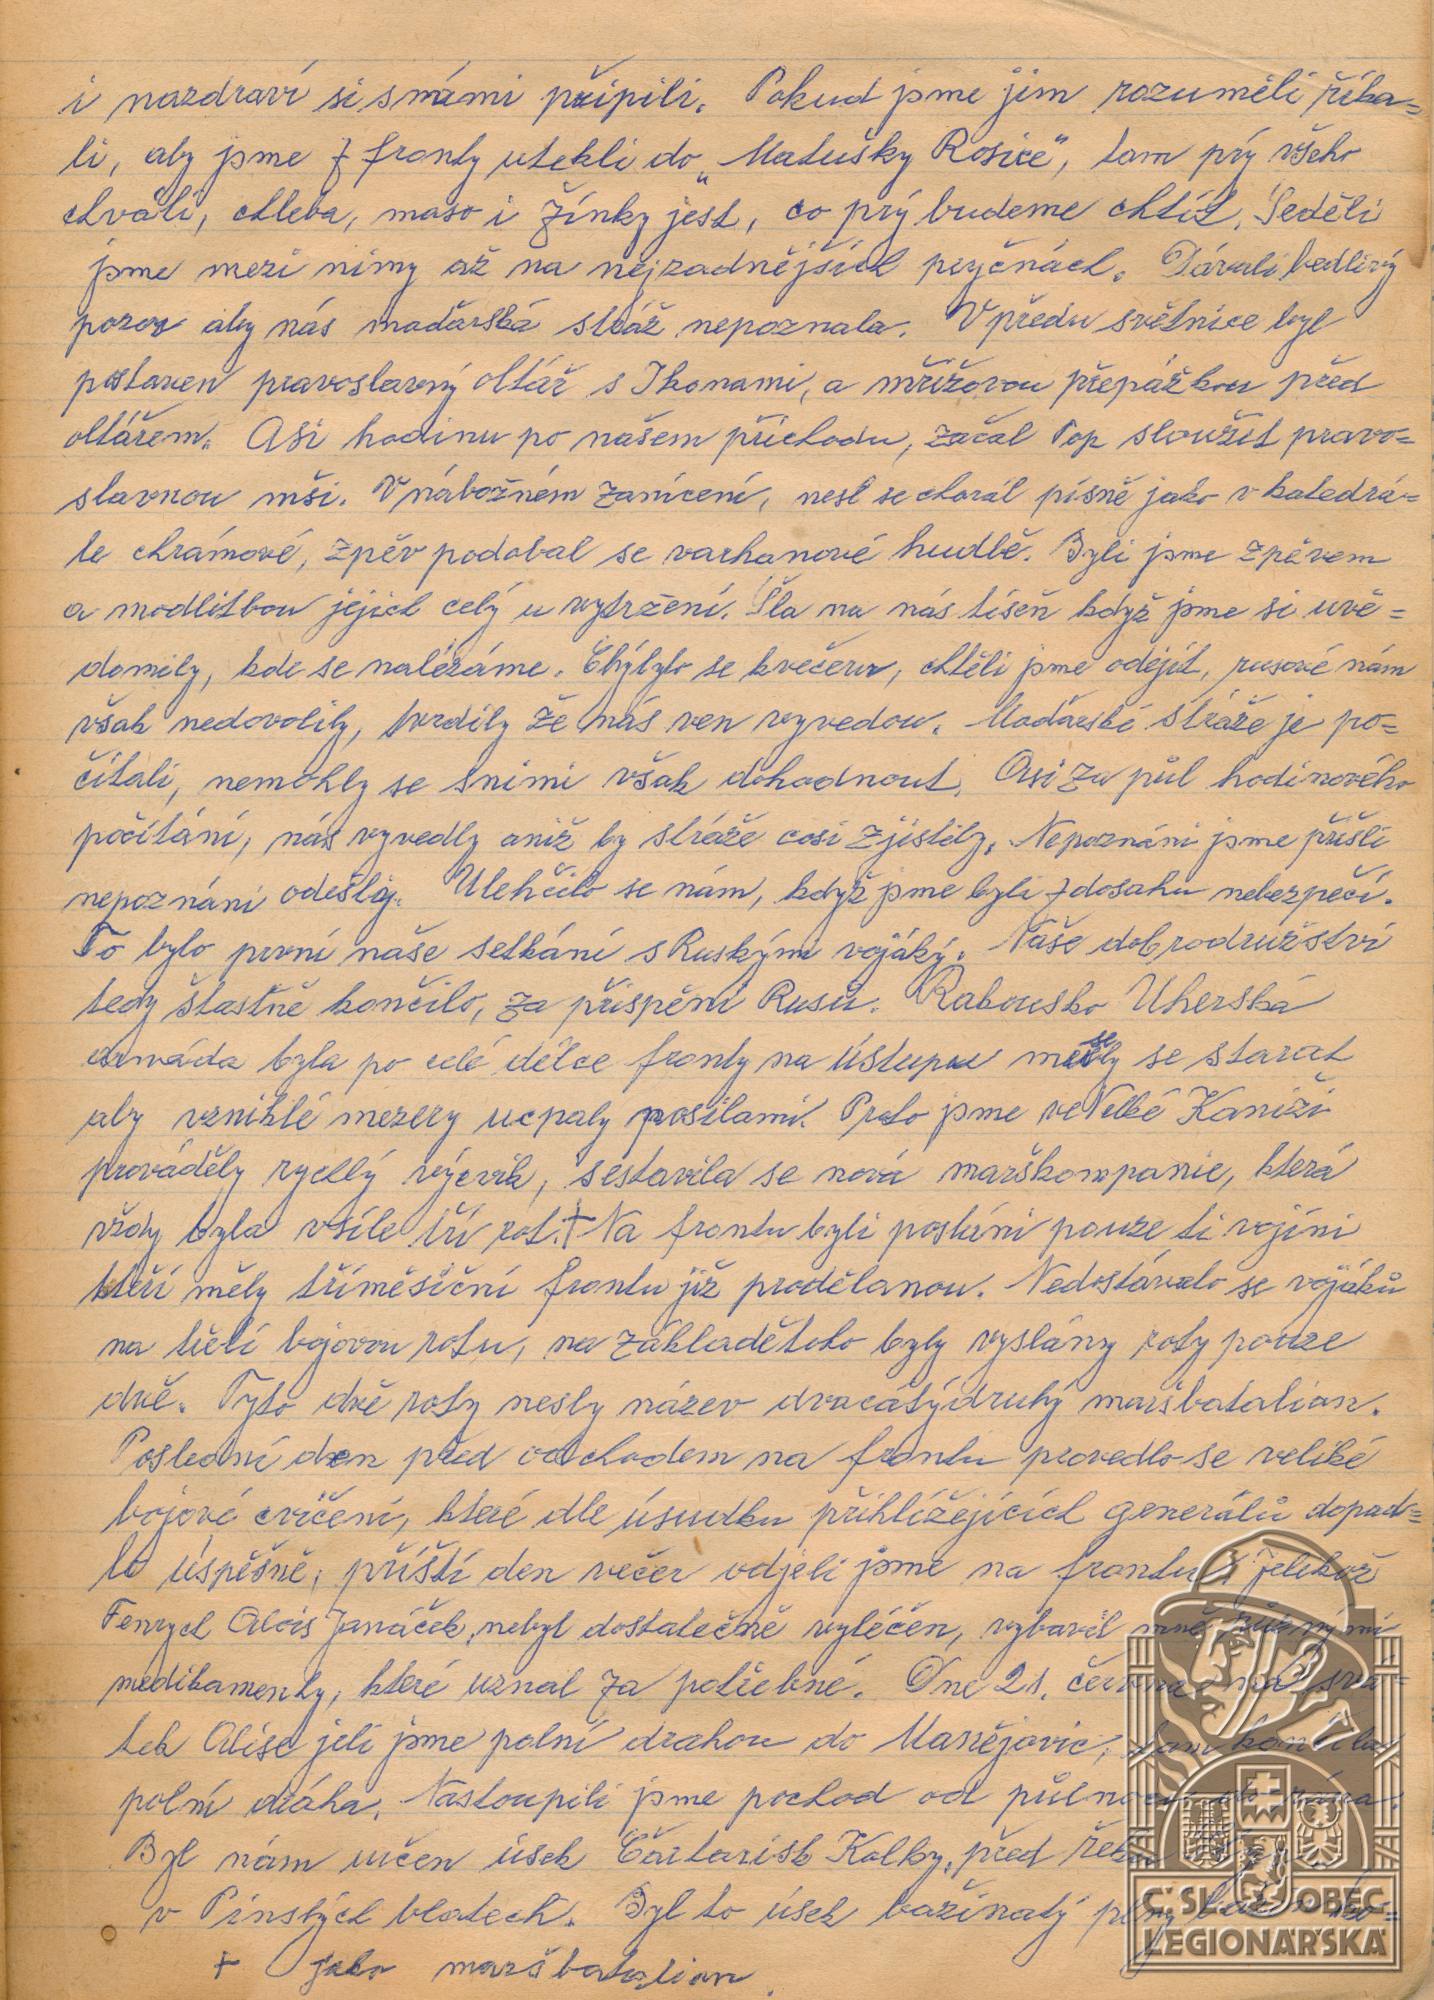 i nazdraví si snámi připili. Pokud jsme jim rozuměli říka=
li, aby jsme z fronty utekli do „Matušky Rosiče", tam prý všeho
chválí, chleba, maso i žínky jest, co prý budeme chtít. Seděli
jsme mezi nimy až na nejzadnějších pryčnách. Dávali bedlivý
pozor aby nás maďarská stráž nepoznala. Vpředu světnice byl
postaven pravoslavný oltář s Ikonami, a mřížovou přepážkou před
oltářem. Asi hodinu po našem příchodu, začal Pop sloužit pravo=
slavnou mši. V nábožném zanícení, nesl se chorál písně jako v katedrá=
le chrámové, zpěv podobal se varhanové hudbě. Byli jsme zpěvem
a modlitbou jejich celý u vytržení. Šla na nás tíseň když jsme si uvě=
domily, kde se nalézáme. Chýlylo se kvečeru, chtěli jsme odejít, rusové nám
však nedovolily, tvrdily že nás ven vyvedou. Maďarské stráže je po=
čítali, nemohly se snimi však dohodnout. Asi za půl hodinového
počítání, nás vyvedly aniž by stráže cosi zjistily. Nepoznáni jsme přišli
nepoznáni odešly. Ulehčilo se nám, když jsme byli z dosahu nebezpečí.
To bylo první naše setkání s Ruskými vojáky. Naše dobrodružství
tedy šťastně končilo, za přispění Rusů. Rakousko Uherská
armáda byla po celé délce fronty na ústupu musely se starat
aby vzniklé mezery ucpaly posilami. Proto jsme ve Velké Kaniži
prováděly rychlý výcvik, sestavila se nová marškompanie, která
vždy byla vsíle tří rot.+ Na frontu byli posláni pouze ti vojíni
kteří měly tříměsíční frontu již prodělanou. Nedostávalo se vojáků
na třetí bojovou rotu, na základětoho byly vyslány roty pouze
dvě. Tyto dvě roty nesly název dvacátýdruhý maršbatalian.
Poslední den před odchodem na frontu provedlo se veliké
bojové cvičení, které dle úsudku přihlížejících generálů dopad=
lo úspěšně, příští den večer odjeli jsme na frontu, jelikož
Fenrych Alois Janáček, nebyl dostatečně vyléčen, vybavil mně různými
medikamenty, které uznal za potřebné. Dne 21. června na sva=
tek Aloise jeli jsme polní drahou do Manějovic, tam končila
polní dráha. Nastoupili jsme pochod od půlnoci do rána.
Byl nám určen úsek Čartarisk Kolky, před řekou
v Pinských blatech. Byl to úsek bažinatý plný
+ jako maršbatalian.
Č. SL. OBEC
LEGIONÁŘSKÁ